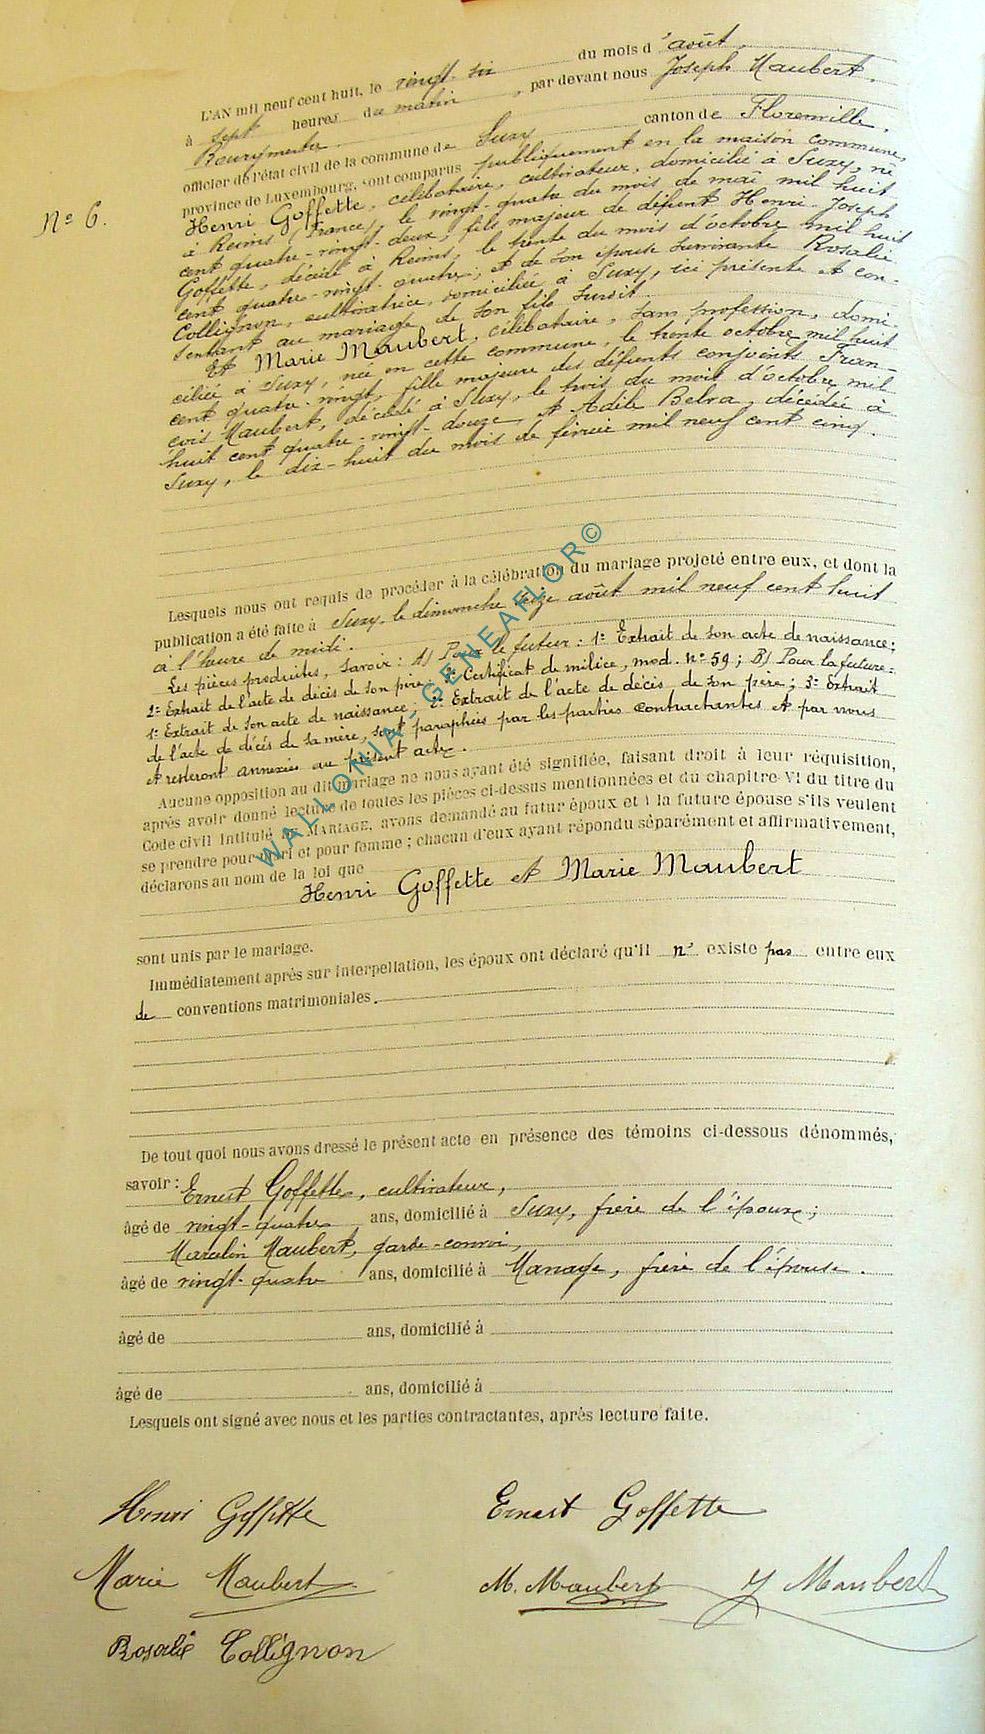 L'AN mil neuf cent huit, le vingt-six du mois d'août,
à sept heures du matin, par devant nous Joseph Maubert,
Bourgmestre
officier de l'état civil de la commune de Suxy canton de Florenville,
province de Luxembourg, sont comparus publiquement en la maison commune,
N° 6.
Henri Goffette, célibataire, cultivateur, domicilié à Suxy, né
à Reims (France) le vingt-quatre du mois de mai mil huit
cent quatre-vingt-deux, fils majeur de défunt Henri-Joseph
Goffette, décédé à Reims, le trente du mois d'octobre mil huit
cent quatre-vingt-quatre, et de son épouse survivante Rosalie
Collignon, cultivatrice, domiciliée à Suxy, ici présente et con-
sentant au mariage de son fils susdit
Et Marie Maubert, célibataire, sans profession, domi-
ciliée à Suxy, née en cette commune, le trente octobre mil huit
cent quatre-vingt, fille majeure des défunts conjoints Fran-
çois Maubert, décédé à Suxy, le trois du mois d'octobre mil
huit cent quatre-vingt-douze et Adile Belva, décédée à
Suxy, le dix-huit du mois de février mil neuf cent cinq.
Lesquels nous ont requis de procéder à la célébration du mariage projeté entre eux, et dont la
publication a été faite à Suxy, le dimanche seize août mil neuf cent huit
à l'heure de midi.
Les pièces produites, savoir : A) Pour le futur : 1° Extrait de son acte de naissance;
2° Extrait de l'acte de décès de son père; 3° Certificat de milice, mod. n° 59; B) Pour la future :
1° Extrait de son acte de naissance; 2° Extrait de l'acte de décès de son père; 3° Extrait
de l'acte de décès de sa mère, sont paraphées par les parties contractantes et par nous
et resteront annexées au présent acte.
Aucune opposition au dit mariage ne nous ayant été signifiée, faisant droit à leur réquisition,
après avoir donné lecture de toutes les pièces ci-dessus mentionnées et du chapitre VI du titre du
Code civil intitulé DU MARIAGE, avons demandé au futur époux et à la future épouse s'ils veulent
se prendre pour mari et pour femme ; chacun d'eux ayant répondu séparément et affirmativement,
déclarons au nom de la loi que
Henri Goffette et Marie Maubert
sont unis par le mariage.
Immédiatement après sur interpellation, les époux ont déclaré qu'il n' existe pas entre eux
de conventions matrimoniales.
De tout quoi nous avons dressé le présent acte en présence des témoins ci-dessous dénommés,
savoir : Ernest Goffette, cultivateur,
âgé de vingt-quatre ans, domicilié à Suxy, frère de l'époux;
Marcelin Maubert, garde-convoi,
âgé de vingt-quatre ans, domicilié à Manage, frère de l'épouse.
âgé de ans, domicilié à
âgé de ans, domicilié à
Lesquels ont signé avec nous et les parties contractantes, après lecture faite.
Henri Goffette Ernest Goffette
Marie Maubert M. Maubert J Maubert
Rosalie Collignon
WALLONIA-GENEAFLOR©